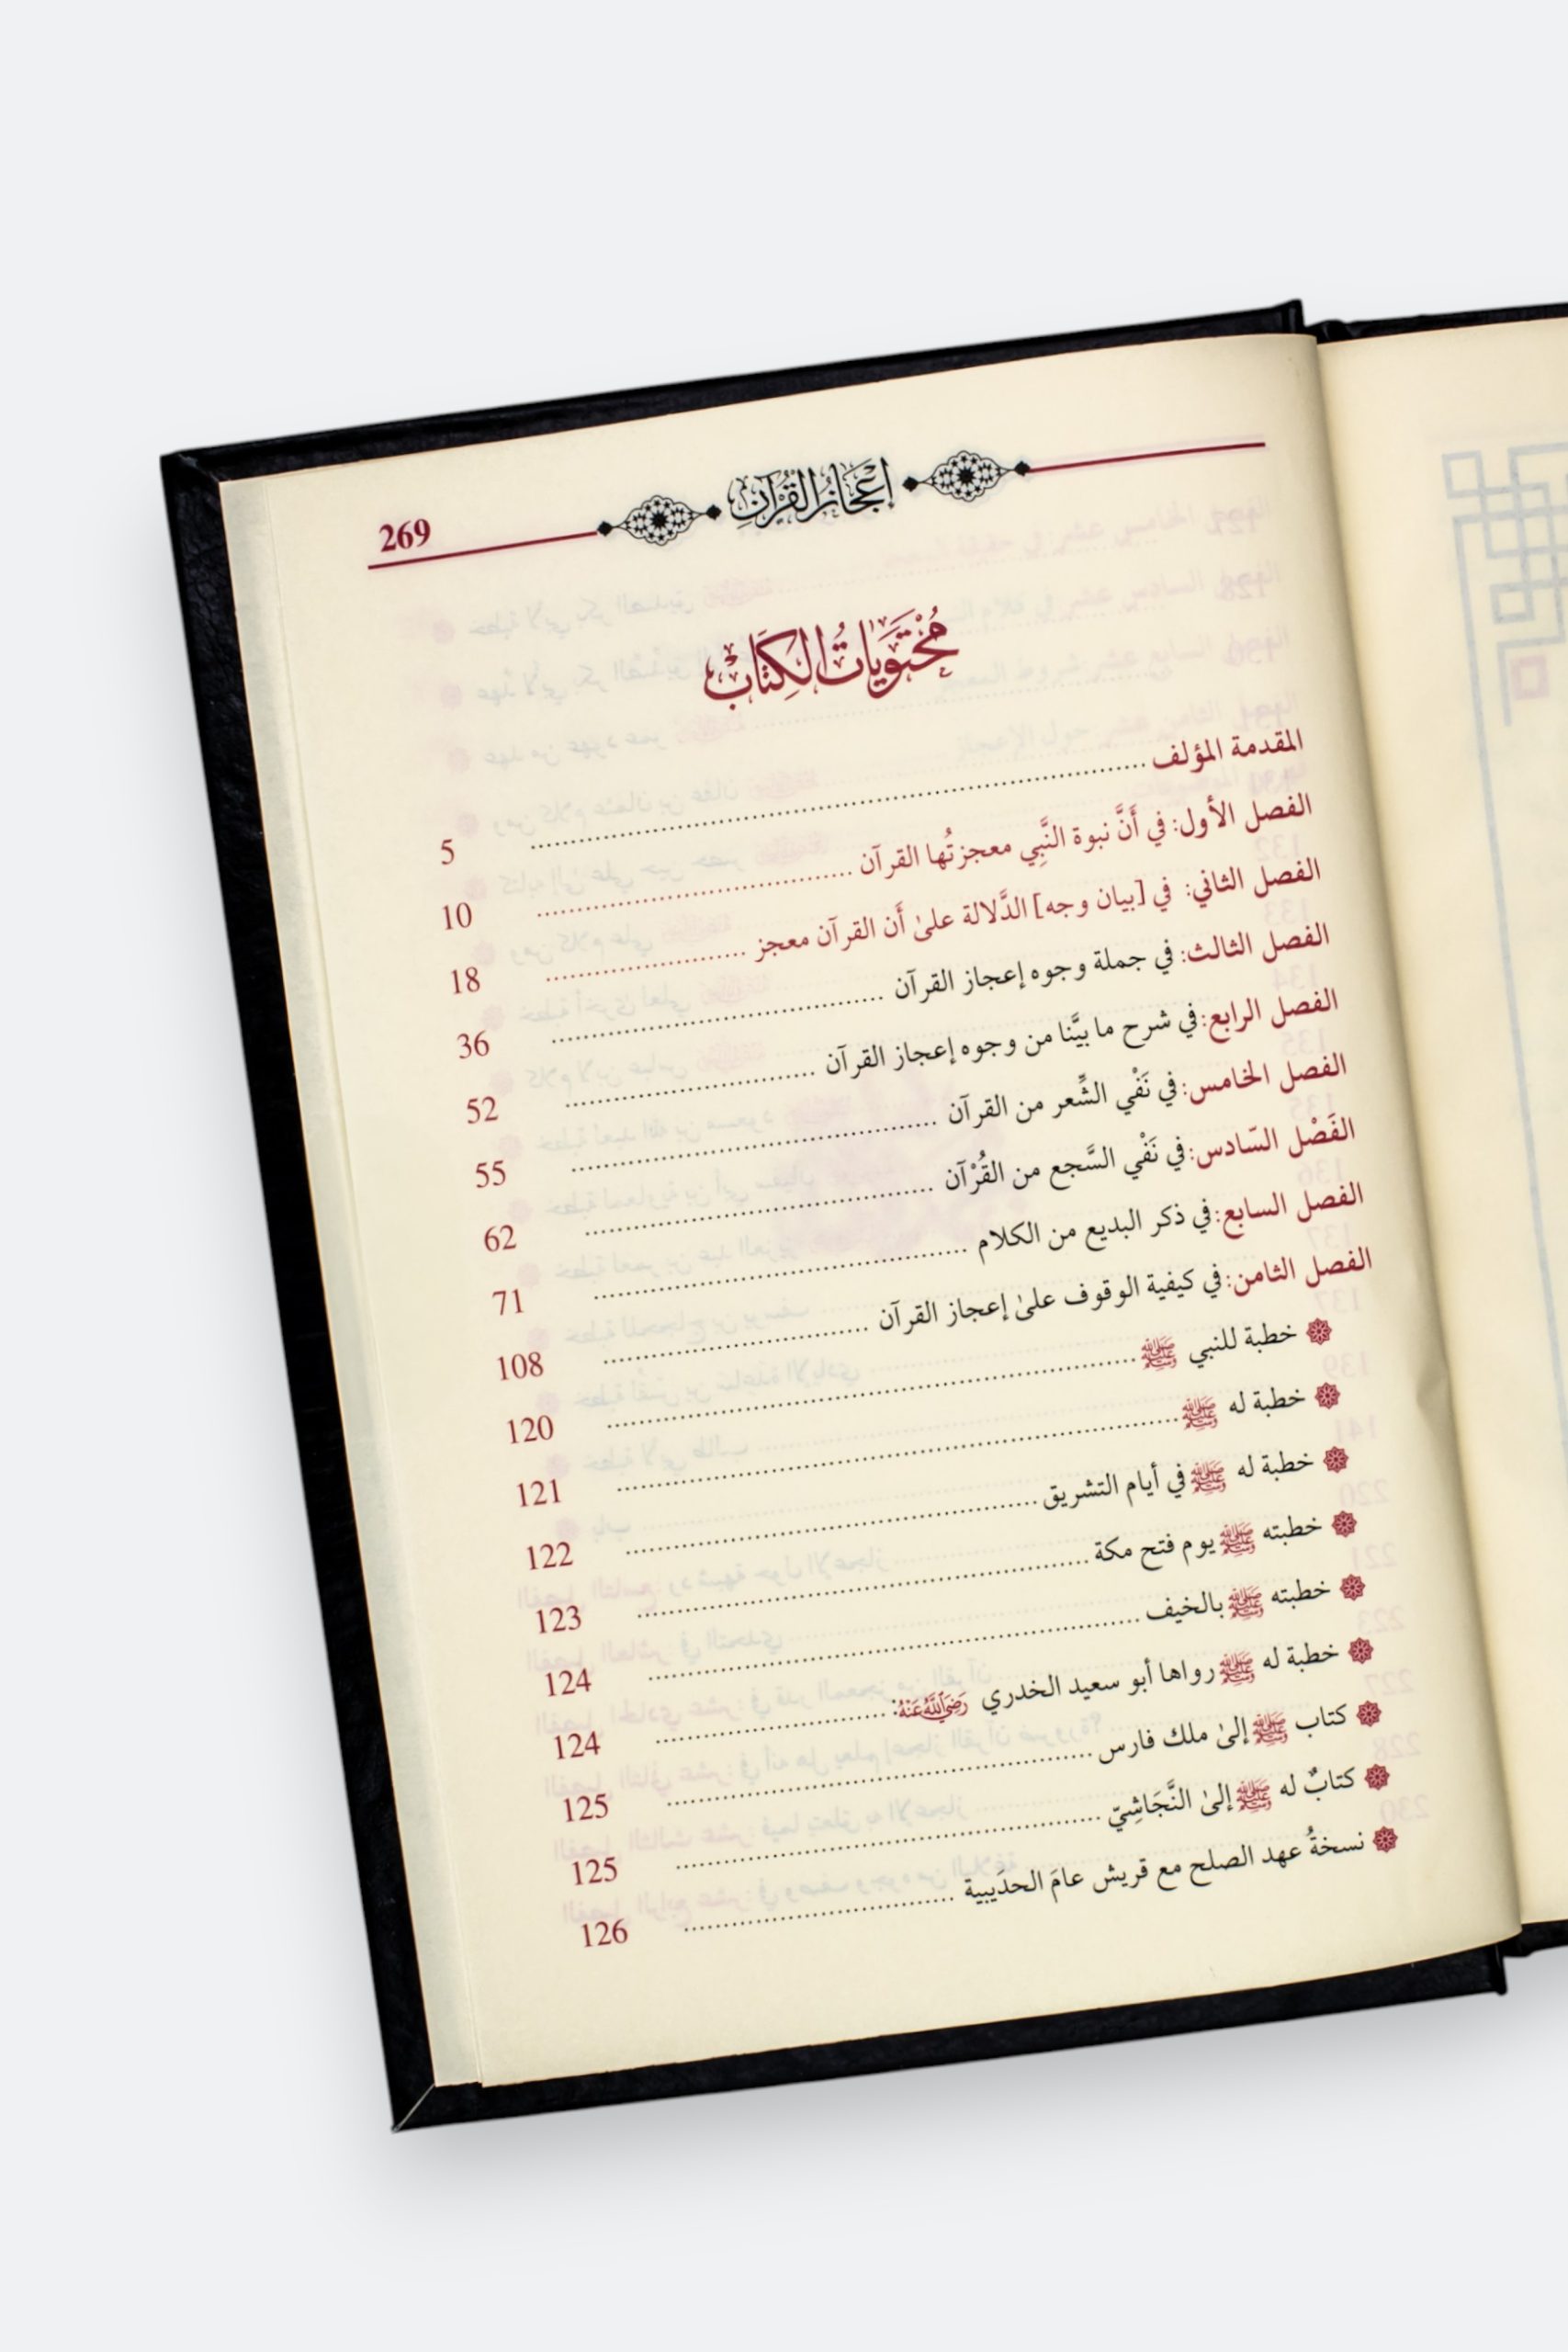 إعجاز القرآن
269
محتويات الكتاب
المقدمة المؤلف ........ 5
الفصل الأول: في أَنَّ نبوة النَّبِي معجزتُها القرآن ........ 10
الفصل الثاني: في [بيان وجه] الدَّلالة علىٰ أَن القرآن معجز ........ 18
الفصل الثالث: في جملة وجوه إعجاز القرآن ........ 36
الفصل الرابع: في شرح ما بيَّنا من وجوه إعجاز القرآن ........ 52
الفصل الخامس: في نَفْي الشِّعر من القرآن ........ 55
الفَصْل السّادس: في نَفْي السَّجع من القُرْآن ........ 62
الفصل السابع: في ذكر البديع من الكلام ........ 71
الفصل الثامن: في كيفية الوقوف علىٰ إعجاز القرآن ........ 108
خطبة للنبي ﷺ ........ 120
خطبة له ﷺ ........ 121
خطبة له ﷺ في أيام التشريق ........ 122
خطبته ﷺ يوم فتح مكة ........ 123
خطبته ﷺ بالخيف ........ 124
خطبة له ﷺ رواها أبو سعيد الخدري رَضِيَ اللَّهُ عَنْهُ: ........ 124
كتاب ﷺ إلىٰ ملك فارس ........ 125
كتابٌ له ﷺ إلىٰ النَّجَاشِيّ ........ 125
نسخةُ عهد الصلح مع قريش عامَ الحدَيبية ........ 126